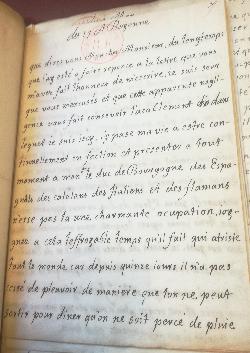 du 19 A Bayonne
que direz vous Monsieur, du longtemps
que j'ay esté a faire reponce a la letre que vous
m'avez fait l'honneur de m'ecrire, je suis seur
que vous m'excusez et que cette aparente negli-
gence vous fait concevoir l'acablement dans
lequel je suis icy. je passe ma vie a estre con-
tinuellement en faction et presenter a tout
moment a mgr le duc de Bourgogne des Espa-
gnols des catelans des Italiens et des flamans
n'esse pas la une charmante ocupation, joig-
nez a cela l'effroyable temps qu'il fait qui atriste
tout le monde, car depuis quinze jours il n'a pas
cessé de pleuvoir de maniere que l'on ne, peut
sortir pour diner qu'on ne soit percé de pluie